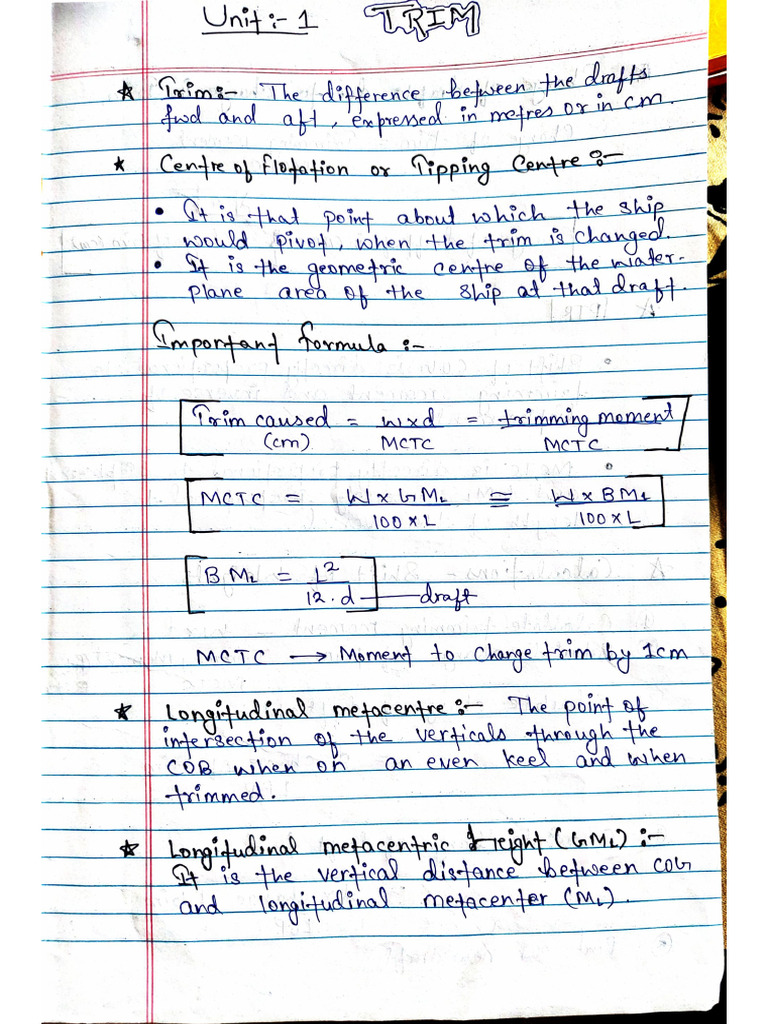 Unit:- 1 TRIM
* Trim:- The difference between the drafts
fwd and aft, expressed in metres or in cm.
* Centre of flotation or Tipping Centre:-
• It is that point about which the ship
would pivot, when the trim is changed.
• It is the geometric centre of the water-
plane area of the ship at that draft.
Important formula:-
Trim caused = w x d = trimming moment
(cm) MCTC MCTC
MCTC = W x GML ≅ W x BML
100 x L 100 x L
BML = L²
12.d — draft
MCTC → Moment to change trim by 1cm
* Longitudinal metacentre:- The point of
intersection of the verticals through the
COB when on an even keel and when
trimmed.
* Longitudinal metacentric Height (GML):-
It is the vertical distance between COG
and longitudinal metacenter (ML).